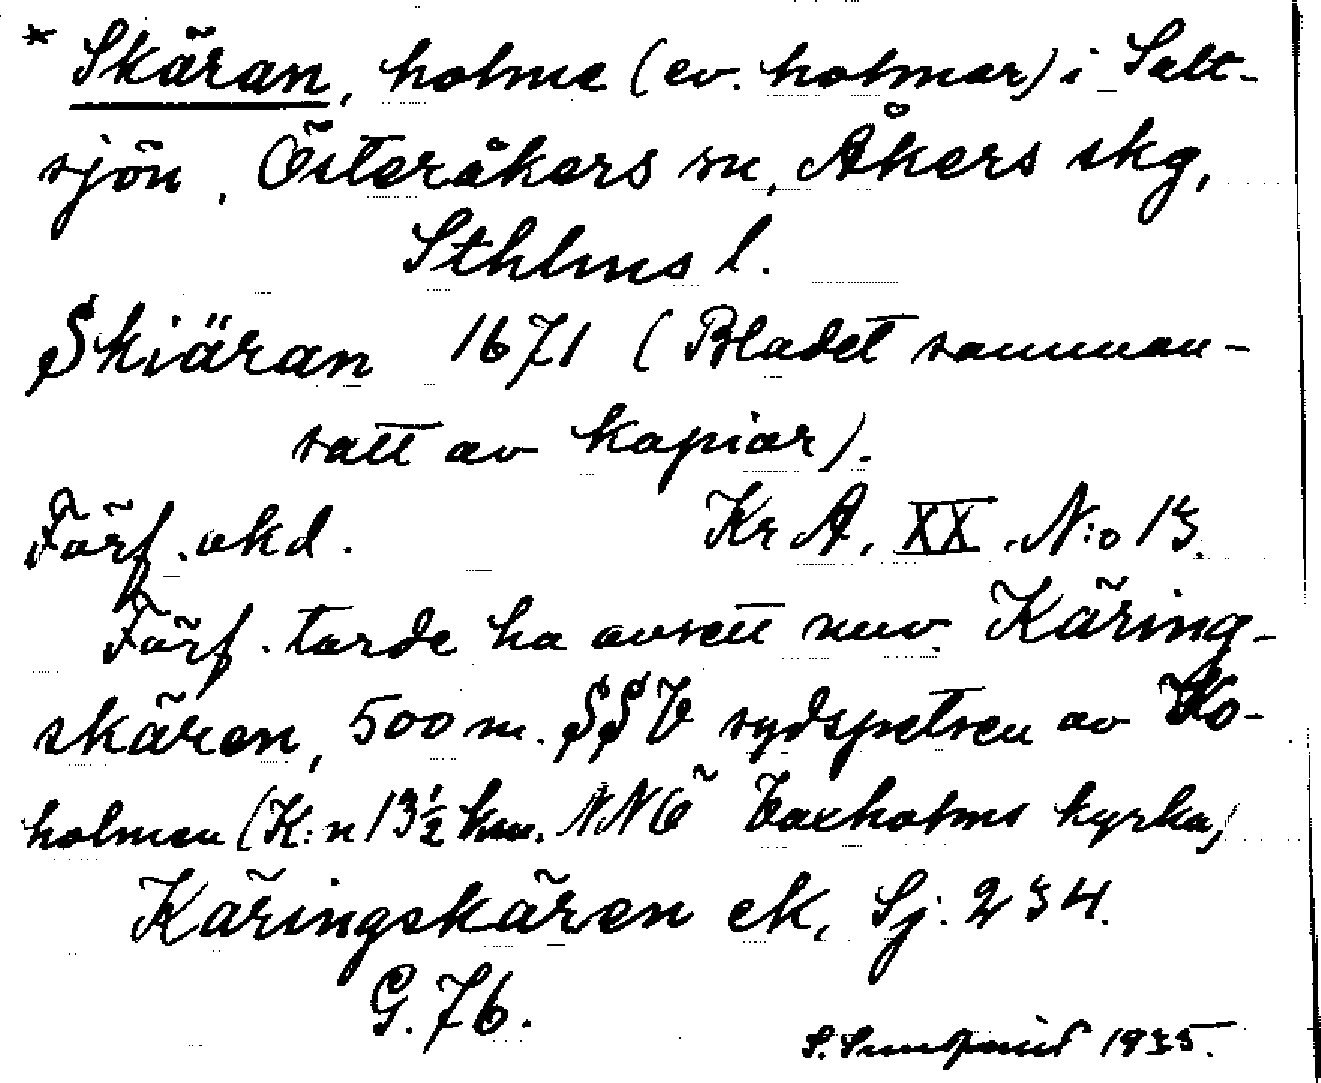 * Skäran, holme (ev. holmar) i Salt-
sjön, Österåkers sn, Åkers skg,
Sthlms l.
Skiäran 1671 (Bladet samman-
satt av kopior).
Förf. okd. Kr A, XX, N:o 13.
Förf. torde ha avsett nuv. Käring-
skären, 500 m. SSV sydspetsen av Ko-
holmen (K:n 13½ km. NNÖ Vaxholms kyrka)
Käringskären ek, Sj. 234.
G. 76.
S. Sundqvist 1935.